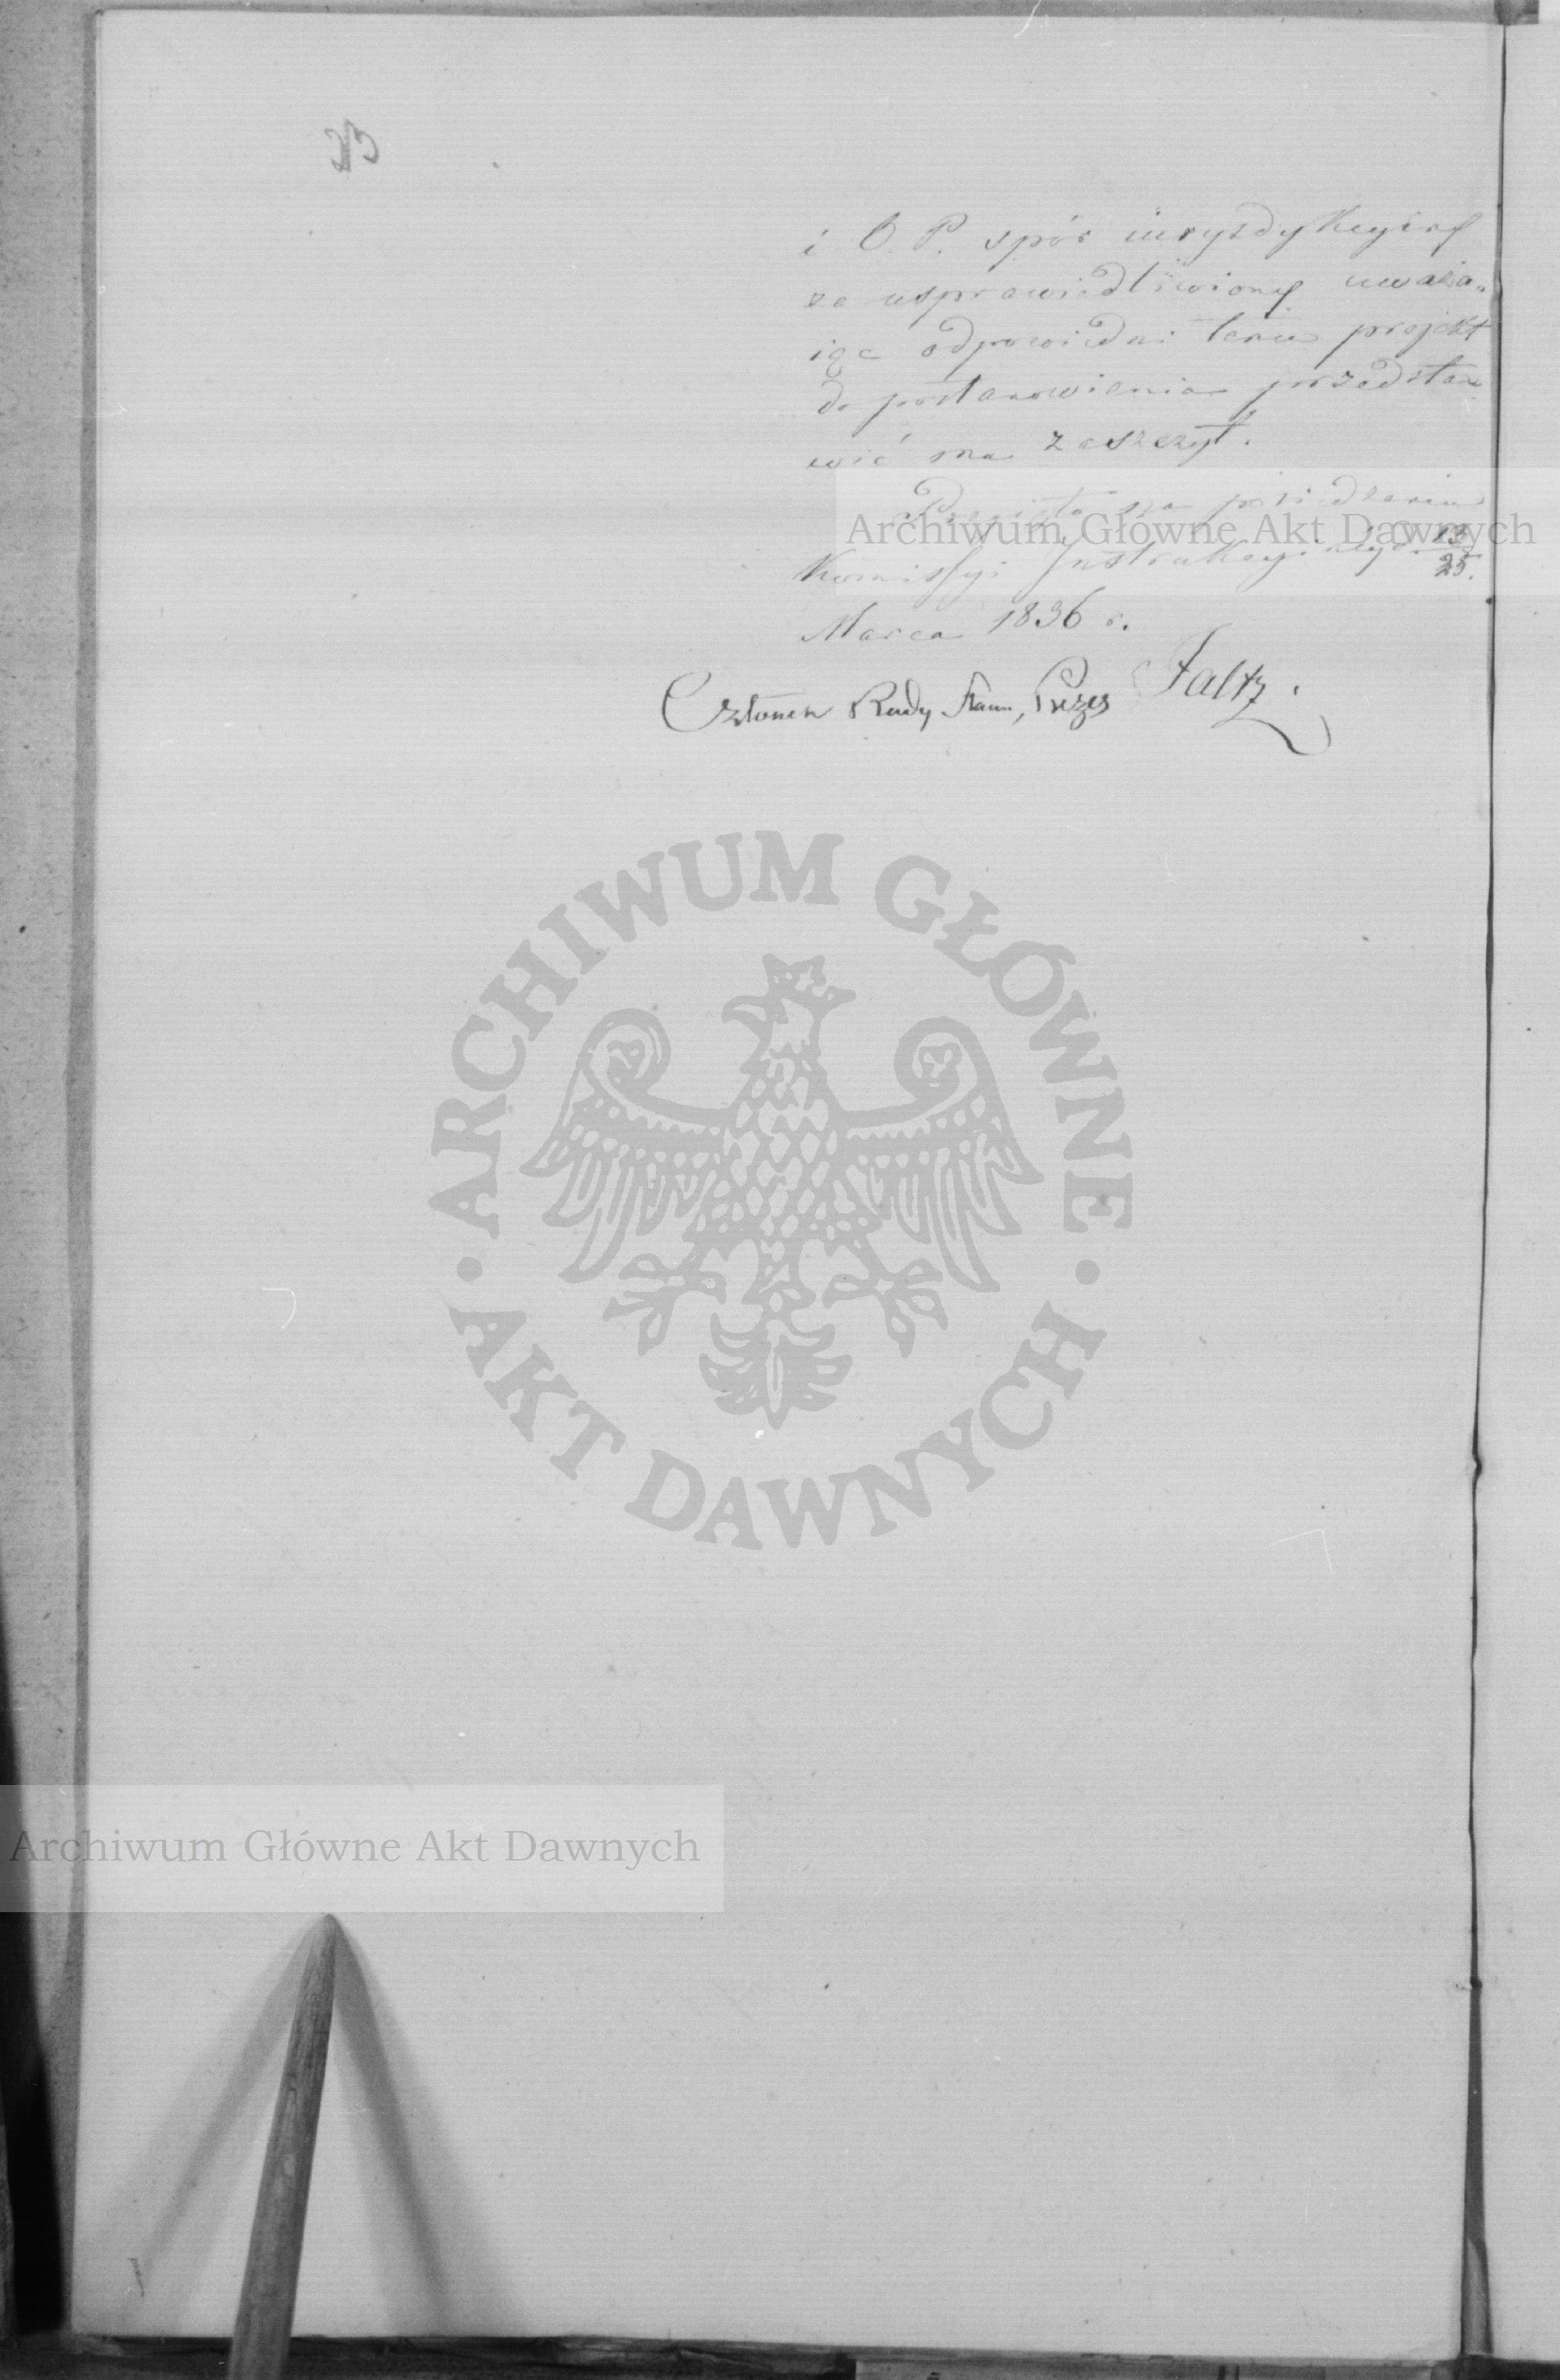 23
i O. P. spór iurysdykcyiny
za usprawiedliwiony uważa„
iąc odpowiedni temu projekt
do postanowienia przedsta„
wić ma zaszczyt.
Przyięto na posiedzeniu
Kommissyi Instrukcyiney d. 13/25.
Marca 1836 r.
Członek Rady Stanu, Prezes Faltz.
Archiwum Główne Akt Dawnych
ARCHIWUM GŁÓWNE
· AKT DAWNYCH ·
Archiwum Główne Akt Dawnych